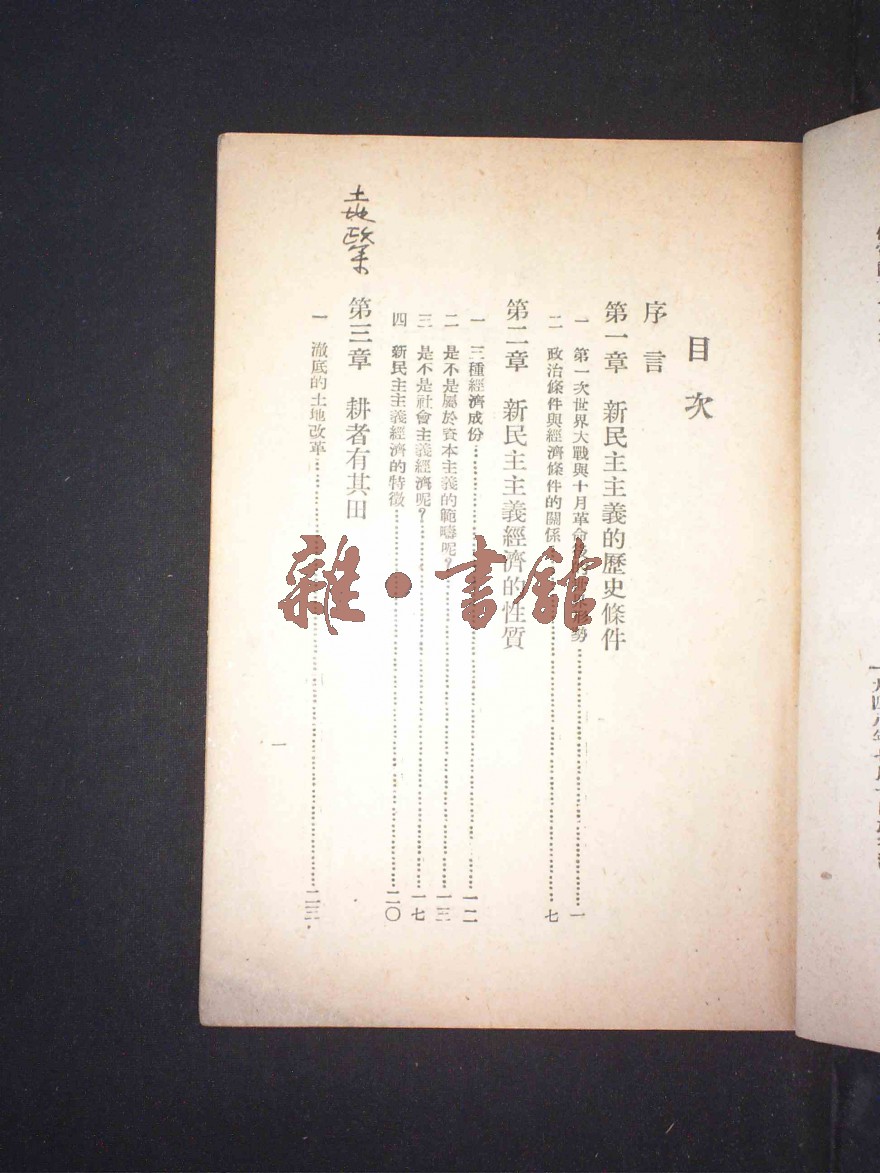 目次
序言
第一章 新民主主義的歷史條件
一 第一次世界大戰與十月革命 形勢……一
二 政治條件與經濟條件的關係……七
第二章 新民主主義經濟的性質
一 三種經濟成份……一二
二 是不是屬於資本主義的範疇呢？……一三
三 是不是社會主義經濟呢？……一七
四 新民主主義經濟的特徵……二〇
土地
第三章 耕者有其田
一 澈底的土地改革……二三
一
雜·書館